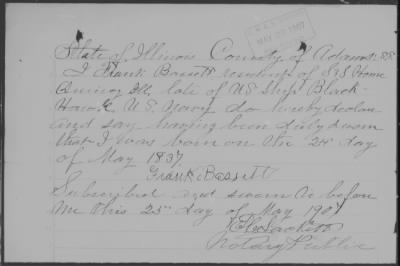 MAY 28 1907
State of Illinois County of Adams SS
I Frank Bassett resident of S&S Home
Quincy Ill, late of US Ship Black
Hawk U.S. Navy do hereby declare
and say having been duly sworn
that I was born on the 25 day
of May 1837
Frank Bassett
Subscribed and sworn to before
me this 25 day of May 190
Notary Public